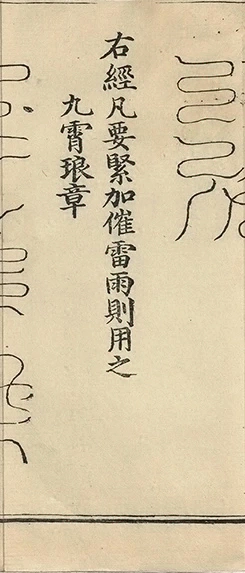 右經凡要緊加催雷雨則用之
九霄琅章